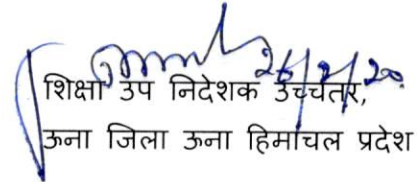 26/2/20
शिक्षा उप निदेशक उच्चतर,
ऊना जिला ऊना हिमाचल प्रदेश